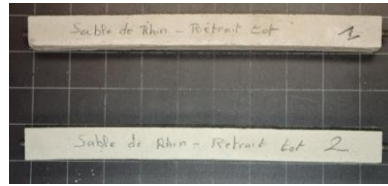 Sable de Rhin - Retrait Lot 1
Sable de Rhin - Retrait Lot 2